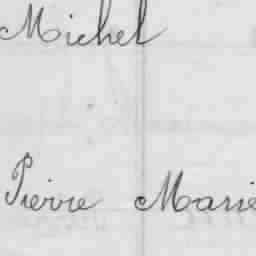 Michel
Pierre Marie